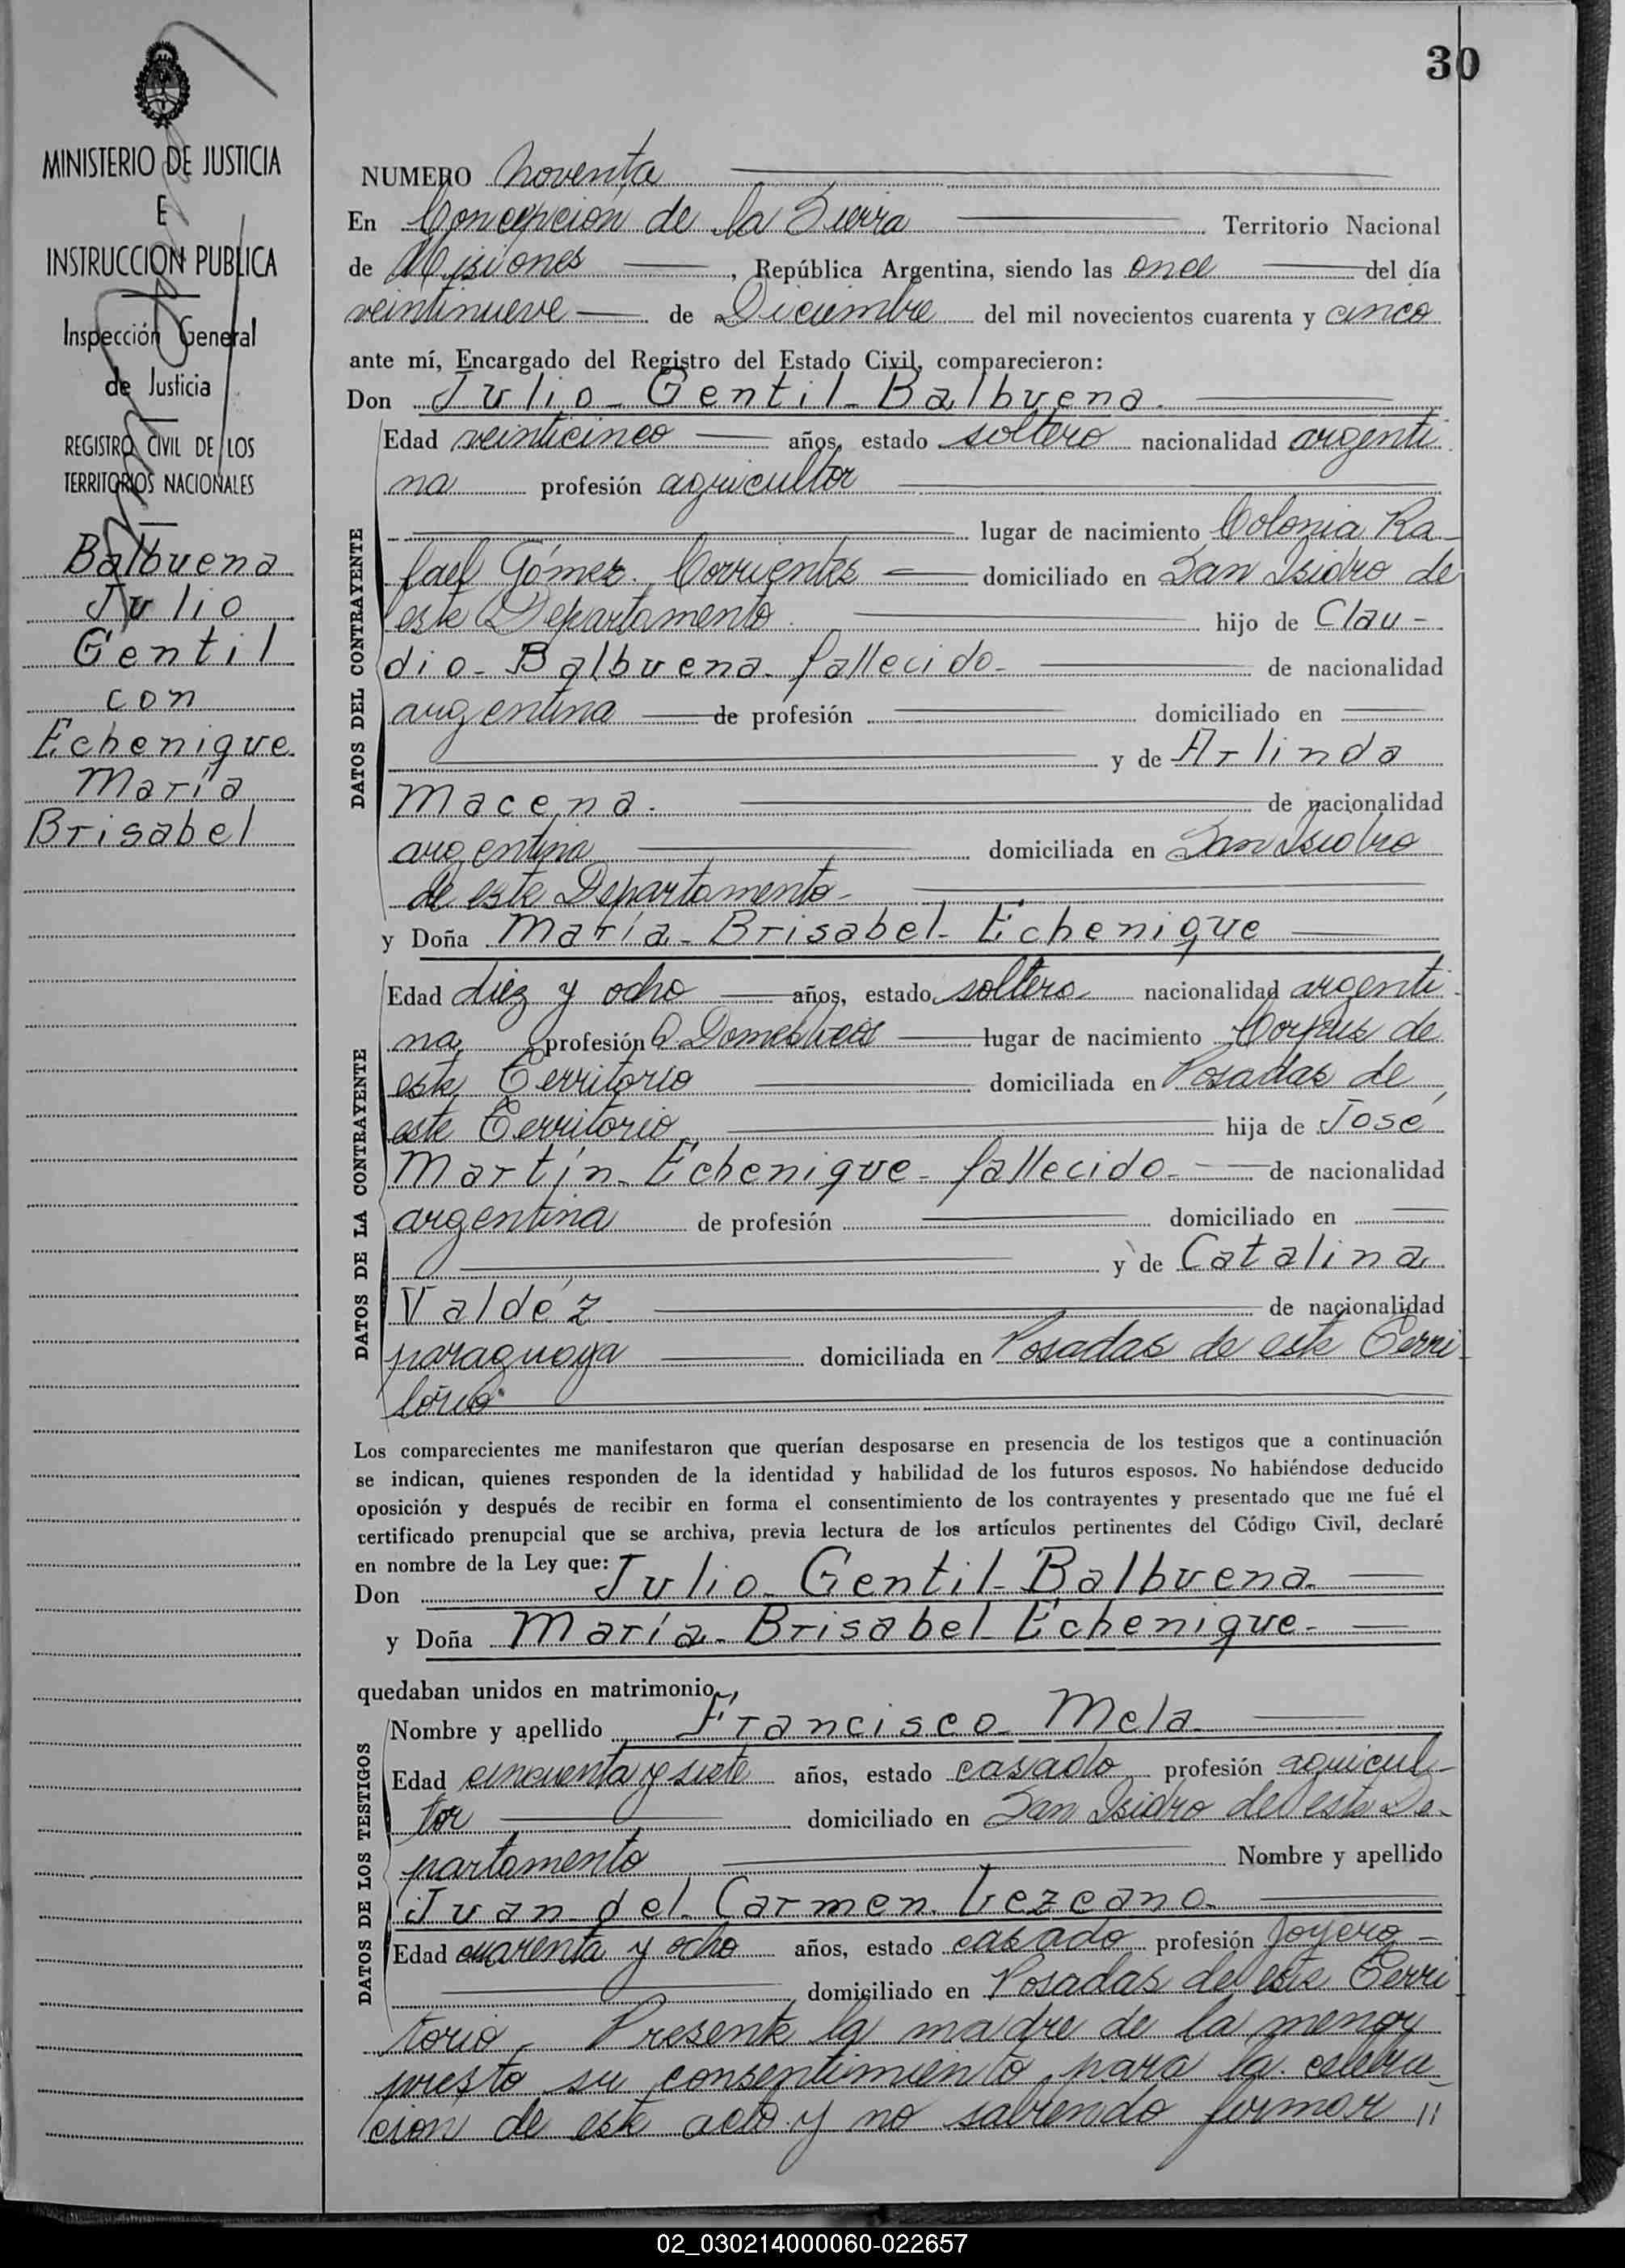 30
MINISTERIO DE JUSTICIA
E
INSTRUCCION PUBLICA
Inspección General
de Justicia
REGISTRO CIVIL DE LOS
TERRITORIOS NACIONALES
Balbuena
Julio
Gentil
con
Echenique
María
Brisabel
NUMERO noventa
En Concepción de la Sierra Territorio Nacional
de Misiones, República Argentina, siendo las once del día
veintinueve de Diciembre del mil novecientos cuarenta y cinco
ante mí, Encargado del Registro del Estado Civil, comparecieron:
Don Julio Gentil Balbuena
DATOS DEL CONTRAYENTE
Edad veinticinco años, estado soltero nacionalidad argenti
na profesión agricultor
lugar de nacimiento Colonia Ra-
fael Gómez. Corrientes domiciliado en San Isidro de
este Departamento. hijo de Clau-
dio Balbuena fallecido de nacionalidad
argentina de profesión domiciliado en
y de Arlinda
Macena. de nacionalidad
argentina domiciliada en San Isidro
de este Departamento
y Doña María Brisabel Echenique
DATOS DE LA CONTRAYENTE
Edad diez y ocho años, estado soltera nacionalidad argenti
na profesión Q. Domesticos lugar de nacimiento Corpus de
este Territorio domiciliada en Posadas de
este Territorio hija de José
Martín Echenique fallecido de nacionalidad
argentina de profesión domiciliado en
y de Catalina
Valdéz de nacionalidad
paraguaya domiciliada en Posadas de este Terri
torio
Los comparecientes me manifestaron que querían desposarse en presencia de los testigos que a continuación
se indican, quienes responden de la identidad y habilidad de los futuros esposos. No habiéndose deducido
oposición y después de recibir en forma el consentimiento de los contrayentes y presentado que me fué el
certificado prenupcial que se archiva, previa lectura de los artículos pertinentes del Código Civil, declaré
en nombre de la Ley que:
Don Julio Gentil Balbuena
y Doña María Brisabel Echenique
quedaban unidos en matrimonio
DATOS DE LOS TESTIGOS
Nombre y apellido Francisco Mela
Edad cincuenta y siete años, estado casado profesión agricul-
tor domiciliado en San Isidro de este De-
partamento Nombre y apellido
Juan del Carmen Lezcano
Edad cuarenta y ocho años, estado casado profesión Joyero
domiciliado en Posadas de este Terri
torio Presente la madre de la menor
presto su consentimiento para la celebra
cion de este acto y no sabiendo firmar //
02_030214000060-022657